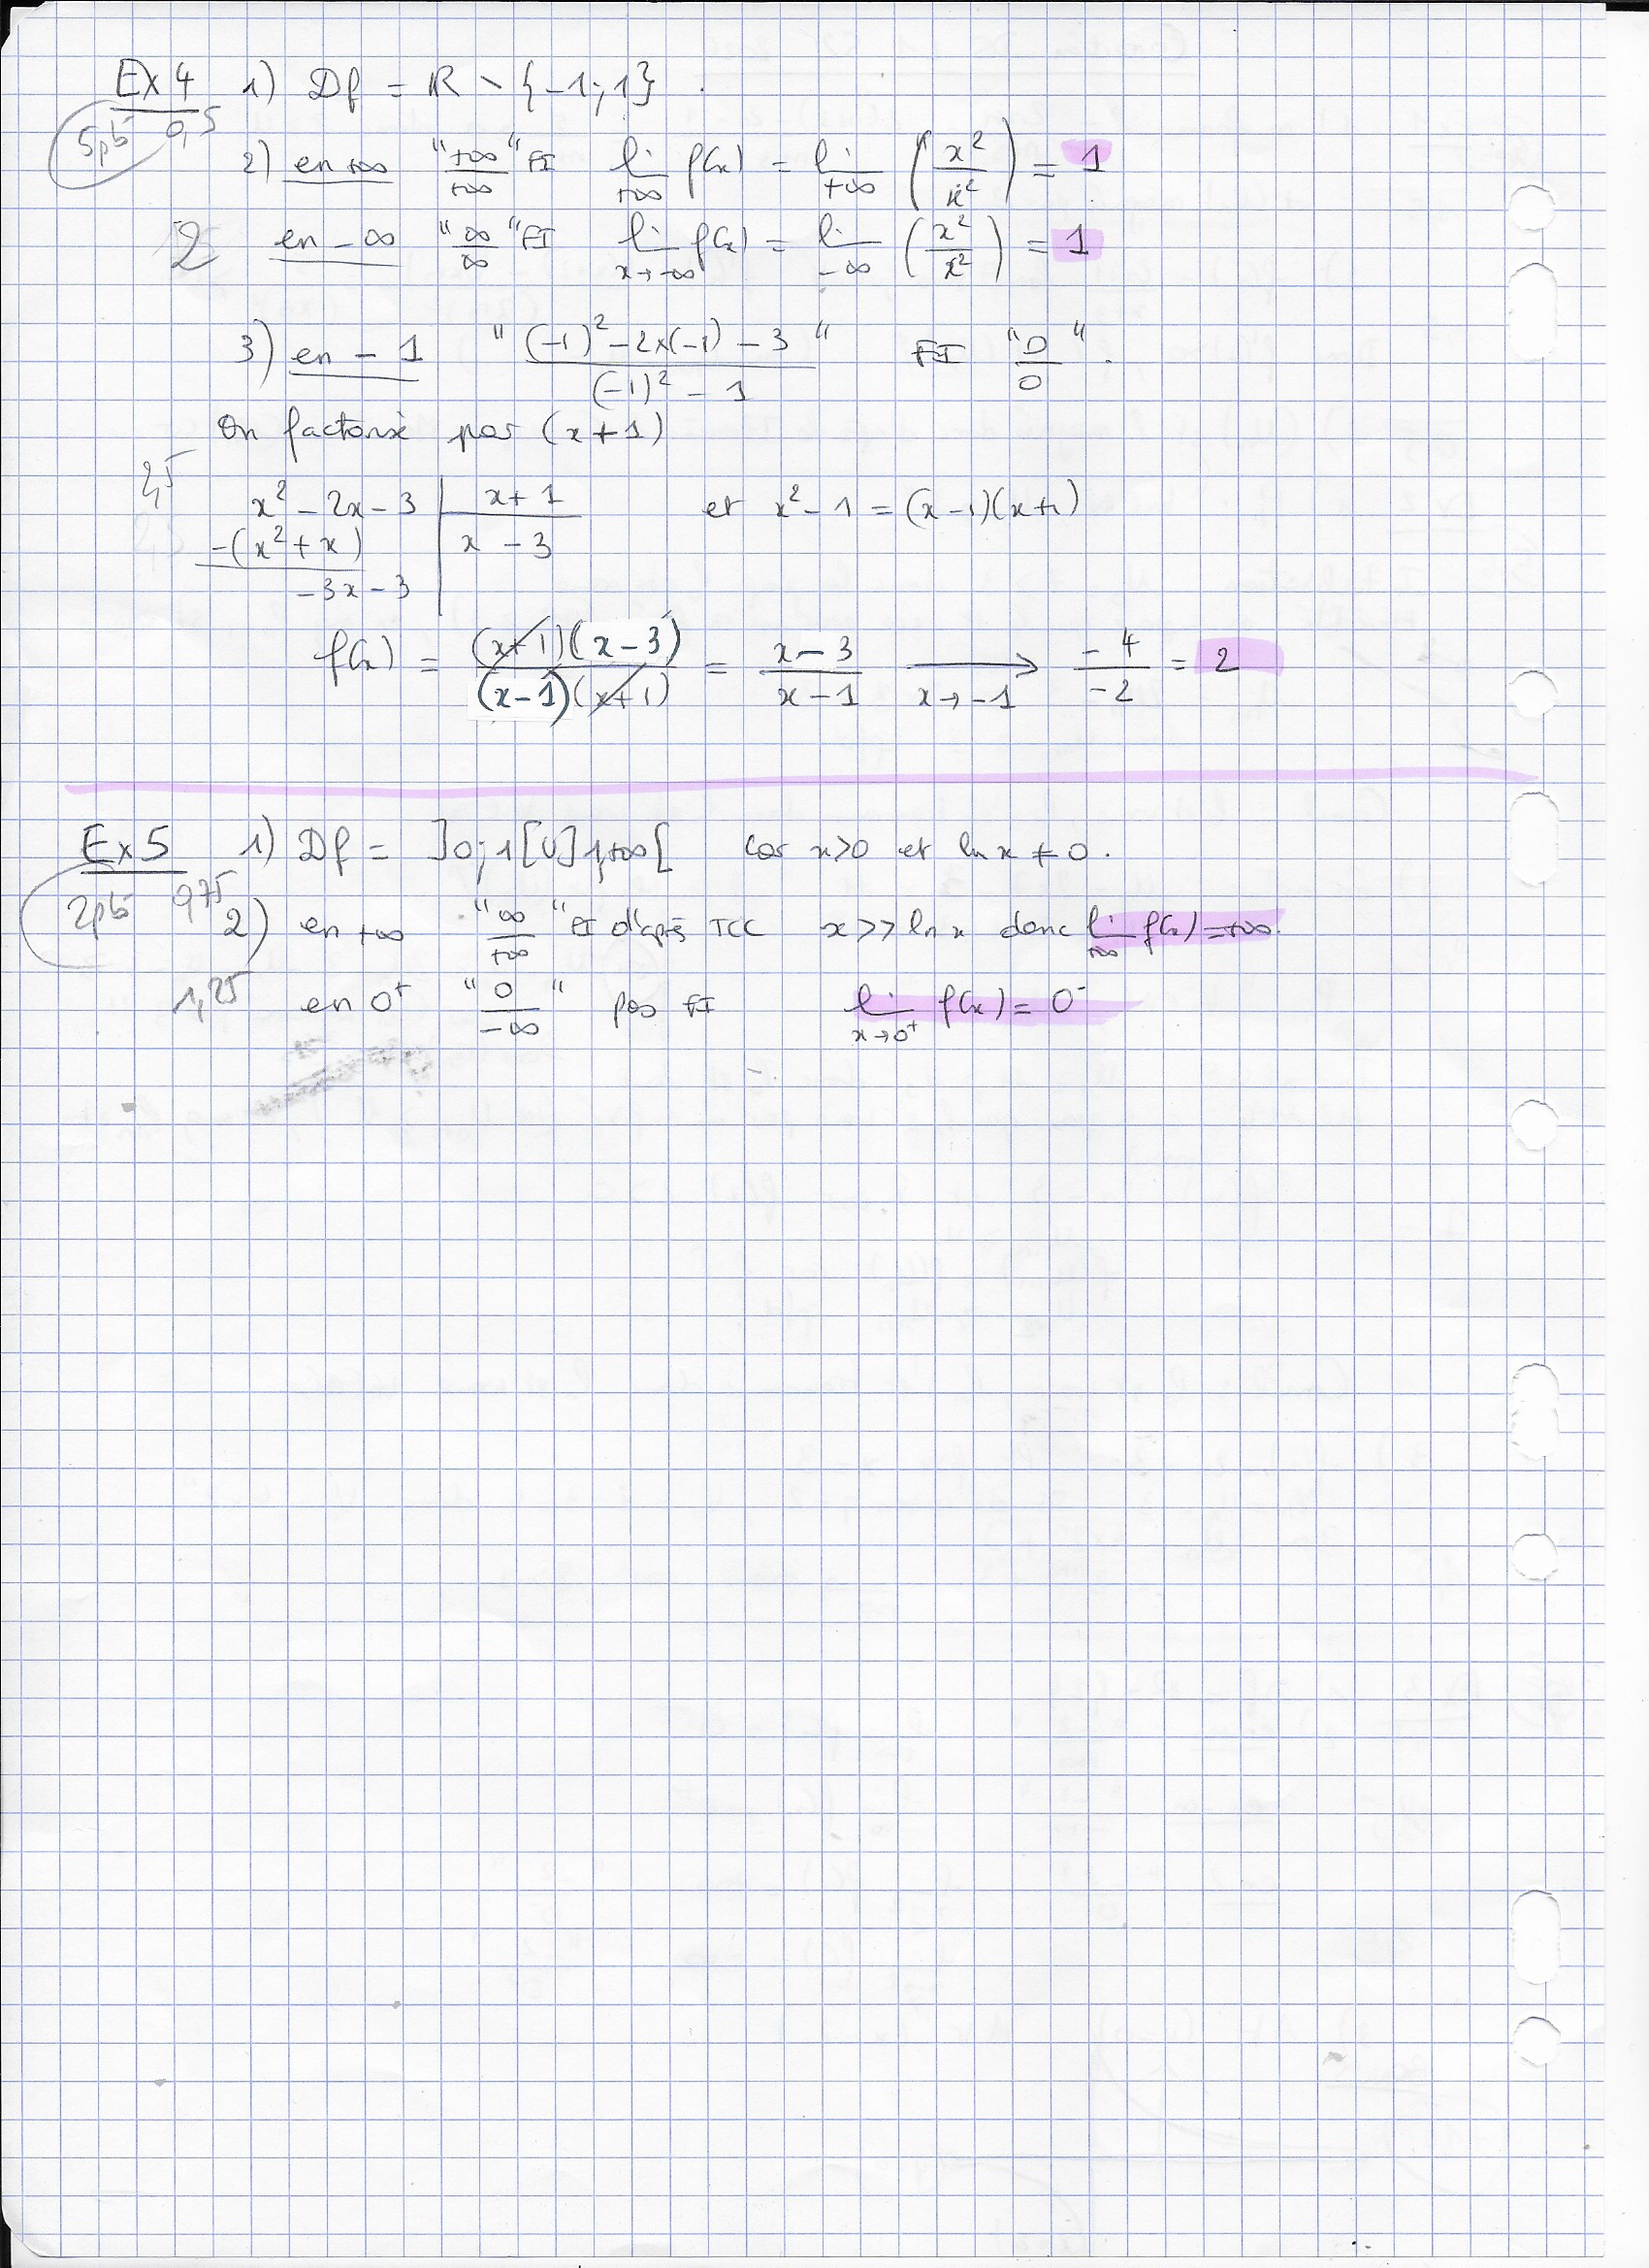 Ex 4 1) Df = ℝ \ {-1; 1}.
5pts 0,5
2) en +∞ "+∞/+∞" FI lim +∞ f(x) = lim +∞ (x²/x²) = 1
2 en -∞ "∞/∞" FI lim x→-∞ f(x) = lim -∞ (x²/x²) = 1
3) en -1 "((-1)² - 2×(-1) - 3)/((-1)² - 1)" FI "0/0".
On factorise par (x+1)
2,5
x² - 2x - 3 | x+1 et x² - 1 = (x-1)(x+1)
-(x² + x) | x - 3
-3x - 3
f(x) = ((x+1)(x-3))/((x-1)(x+1)) = (x-3)/(x-1) ⟶ x→-1 -4/-2 = 2
Ex 5 1) Df = ]0; 1[ U ]1, +∞[ car x>0 et ln x ≠ 0.
2pts 0,75
2) en +∞ "∞/+∞" FI d'après TCC x >> ln x donc lim +∞ f(x) = +∞.
1,25 en 0⁺ "0/-∞" pas FI lim x→0⁺ f(x) = 0⁻